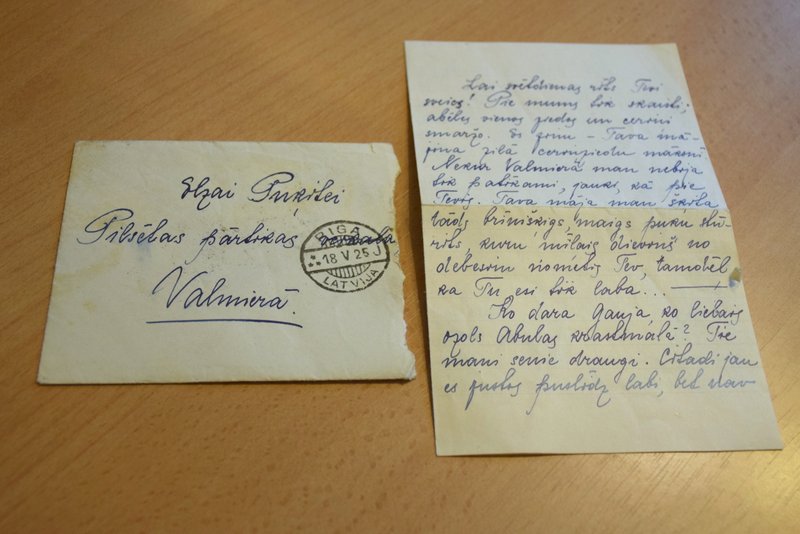 Elzai Puķītei
Pilsētas pārtikas veikala
Valmierā.
RIGA
18 V 25 J
LATVIJA
Lai svētdienas rīts Tevi
sveic! Pie mums tik skaisti;
ābeles vienos ziedos un ceriņi
smaržo. Es zinu – Tava mā-
jiņa zilā ceriņziedu mākonī.
Nekur Valmierā man nebija
tik patīkami, jauki, kā pie
Tevis. Tava māja man šķita
tāds brīnišķīgs, maigs puķu stū-
rīts, kuru mīlais dieviņš no
debesīm nometis Tev, tamdēļ
ka Tu esi tik laba...
Ko dara Gauja, ko lielais
ozols Abulas krastmalā? Tie
mani senie draugi. Citādi jau
es jūtos puslīdz labi, bet nav